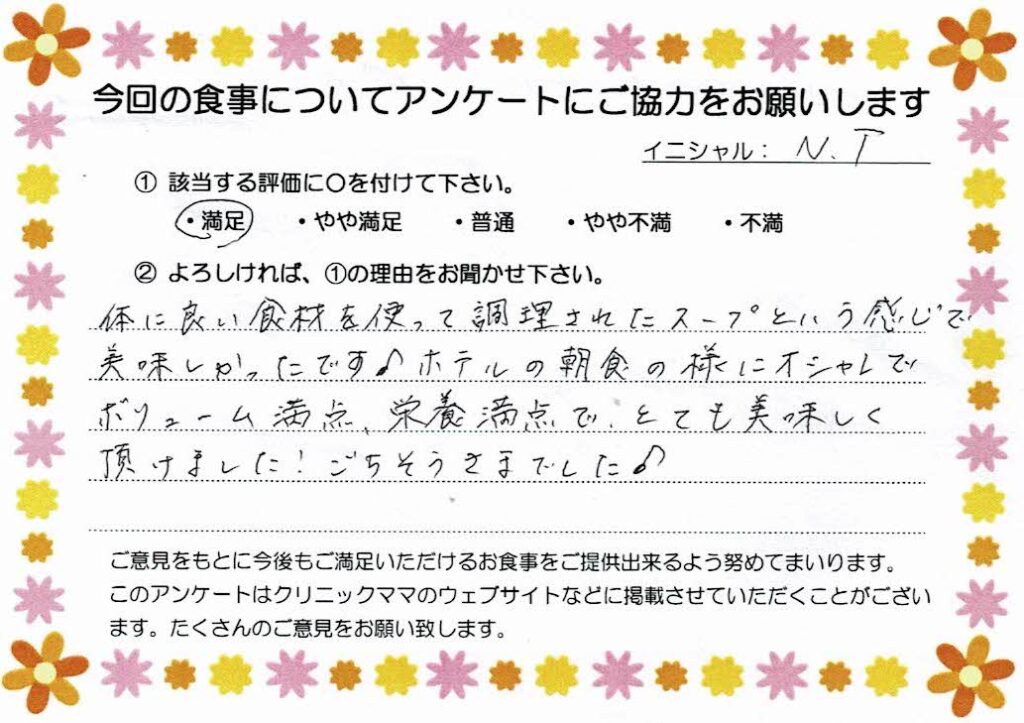 今回の食事についてアンケートにご協力をお願いします
イニシャル： N.T
① 該当する評価に〇を付けて下さい。
・満足 ・やや満足 ・普通 ・やや不満 ・不満
② よろしければ、①の理由をお聞かせ下さい。
体に良い食材を使って調理されたスープという感じで
美味しかったです♪ホテルの朝食の様にオシャレで
ボリューム満点、栄養満点で、とても美味しく
頂けました！ごちそうさまでした♪
ご意見をもとに今後もご満足いただけるお食事をご提供出来るよう努めてまいります。
このアンケートはクリニックママのウェブサイトなどに掲載させていただくことがござい
ます。たくさんのご意見をお願い致します。